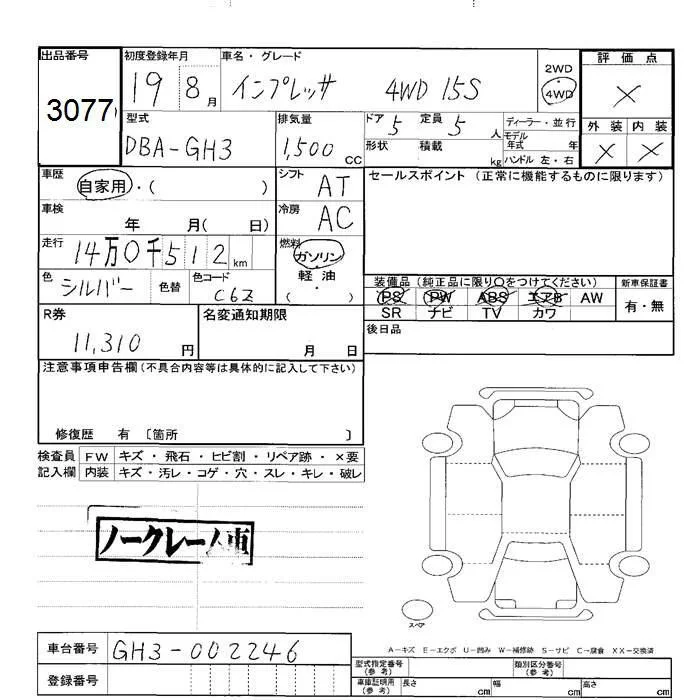 出品番号 初度登録年月 車名・グレード 2WD 4WD 評価点
3077 19 8月 インプレッサ 4WD 15S ×
型式 排気量 ドア 5 定員 5人 ディーラー・並行 外装 内装
DBA-GH3 1,500cc 形状 積載 kg モデル年式 年 ハンドル 左・右 × ×
車歴 自家用・( ) シフト AT セールスポイント(正常に機能するものに限ります)
車検 年 月( 日) 冷房 AC
走行 14万0千512km 燃料 ガソリン
色 シルバー 色替 色コード C6Z 軽・油 ( )
装備品(純正品に限り○をつけてください) 新車保証書
PS PW ABS エアB AW 有・無
SR ナビ TV カワ
R券 11,310円 名変通知期限 月 日 後日品
注意事項申告欄(不具合内容等は具体的に記入して下さい)
修復歴 有 〔箇所 〕
検査員 FW キズ・飛石・ヒビ割・リペア跡・×要
記入欄 内装 キズ・汚レ・コゲ・穴・スレ・キレ・破レ
ノークレーム車
スペア
A-キズ E-エクボ U-凹み W-補修跡 S-サビ C-腐食 XX-交換済
車台番号 GH3-002246
登録番号
型式指定番号(参考) 類別区分番号(参考)
車庫証明用(参考) 長さ cm 幅 cm 高さ cm